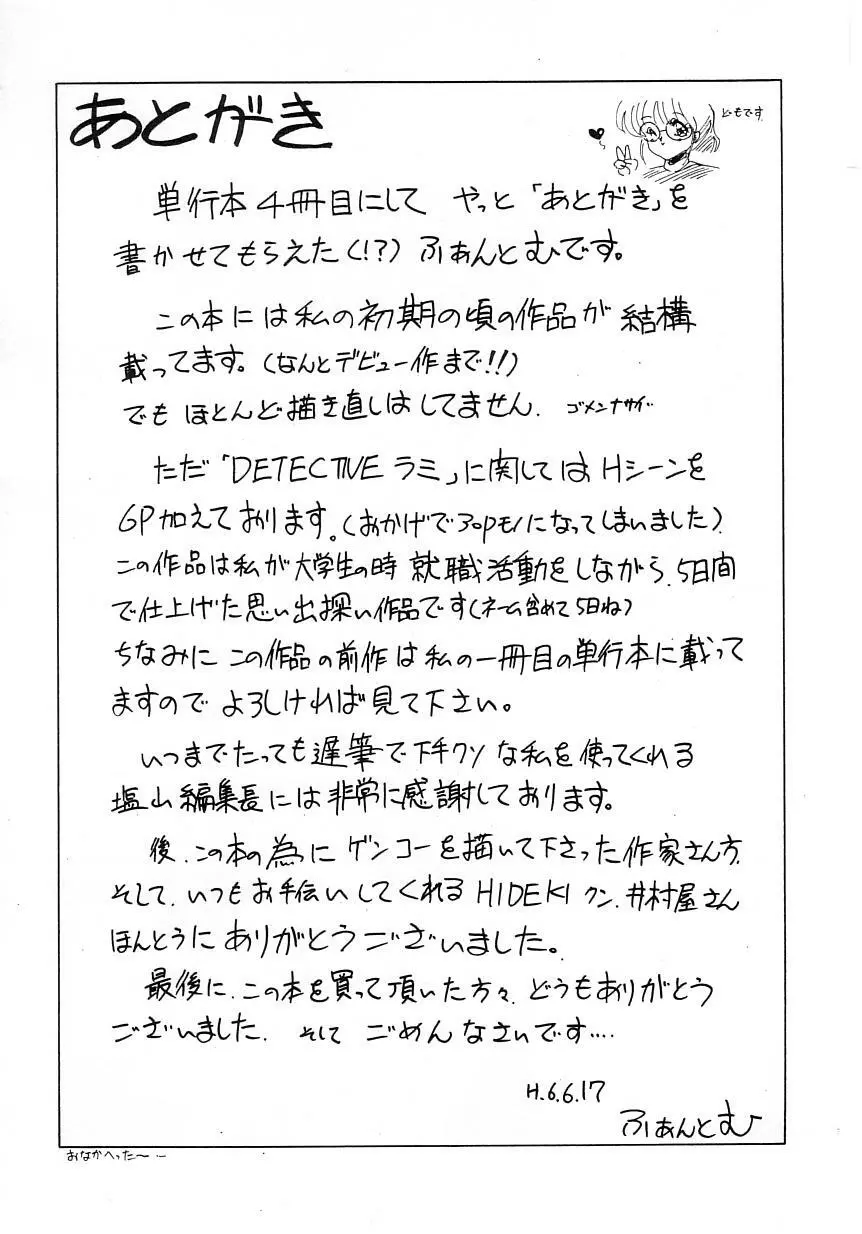 あとがき
どもです
単行本4冊目にして やっと「あとがき」を
書かせてもらえた(!?) ふぁんとむです。
この本には私の初期の頃の作品が 結構
載ってます。(なんとデビュー作まで!!)
でも ほとんど描き直しはしてません. ゴメンナサイ
ただ「DETECTIVE ラミ」に関しては Hシーンを
6P加えております。(おかげで30Pモノになってしまいました)
この作品は私が大学生の時 就職活動をしながら、5日間
で仕上げた思い出探い作品です(ネーム含めて5日ね)
ちなみに この作品の前作は私の一冊目の単行本に載って
ますので よろしければ見て下さい。
いつまでたっても遅筆で下手クソな私を使ってくれる
塩山編集長には非常に感謝しております。
後、この本の為に ゲンコーを描いて下さった作家さん方、
そして、いつもお手伝いしてくれる HIDEKI クン、井村屋さん
ほんとうに ありがとうございました。
最後に、この本を買って頂いた方々、どうもありがとう
ございました. そして ごめんなさいです‥‥
H.6.6.17
ふぁんとむ
おなかへった〜‥